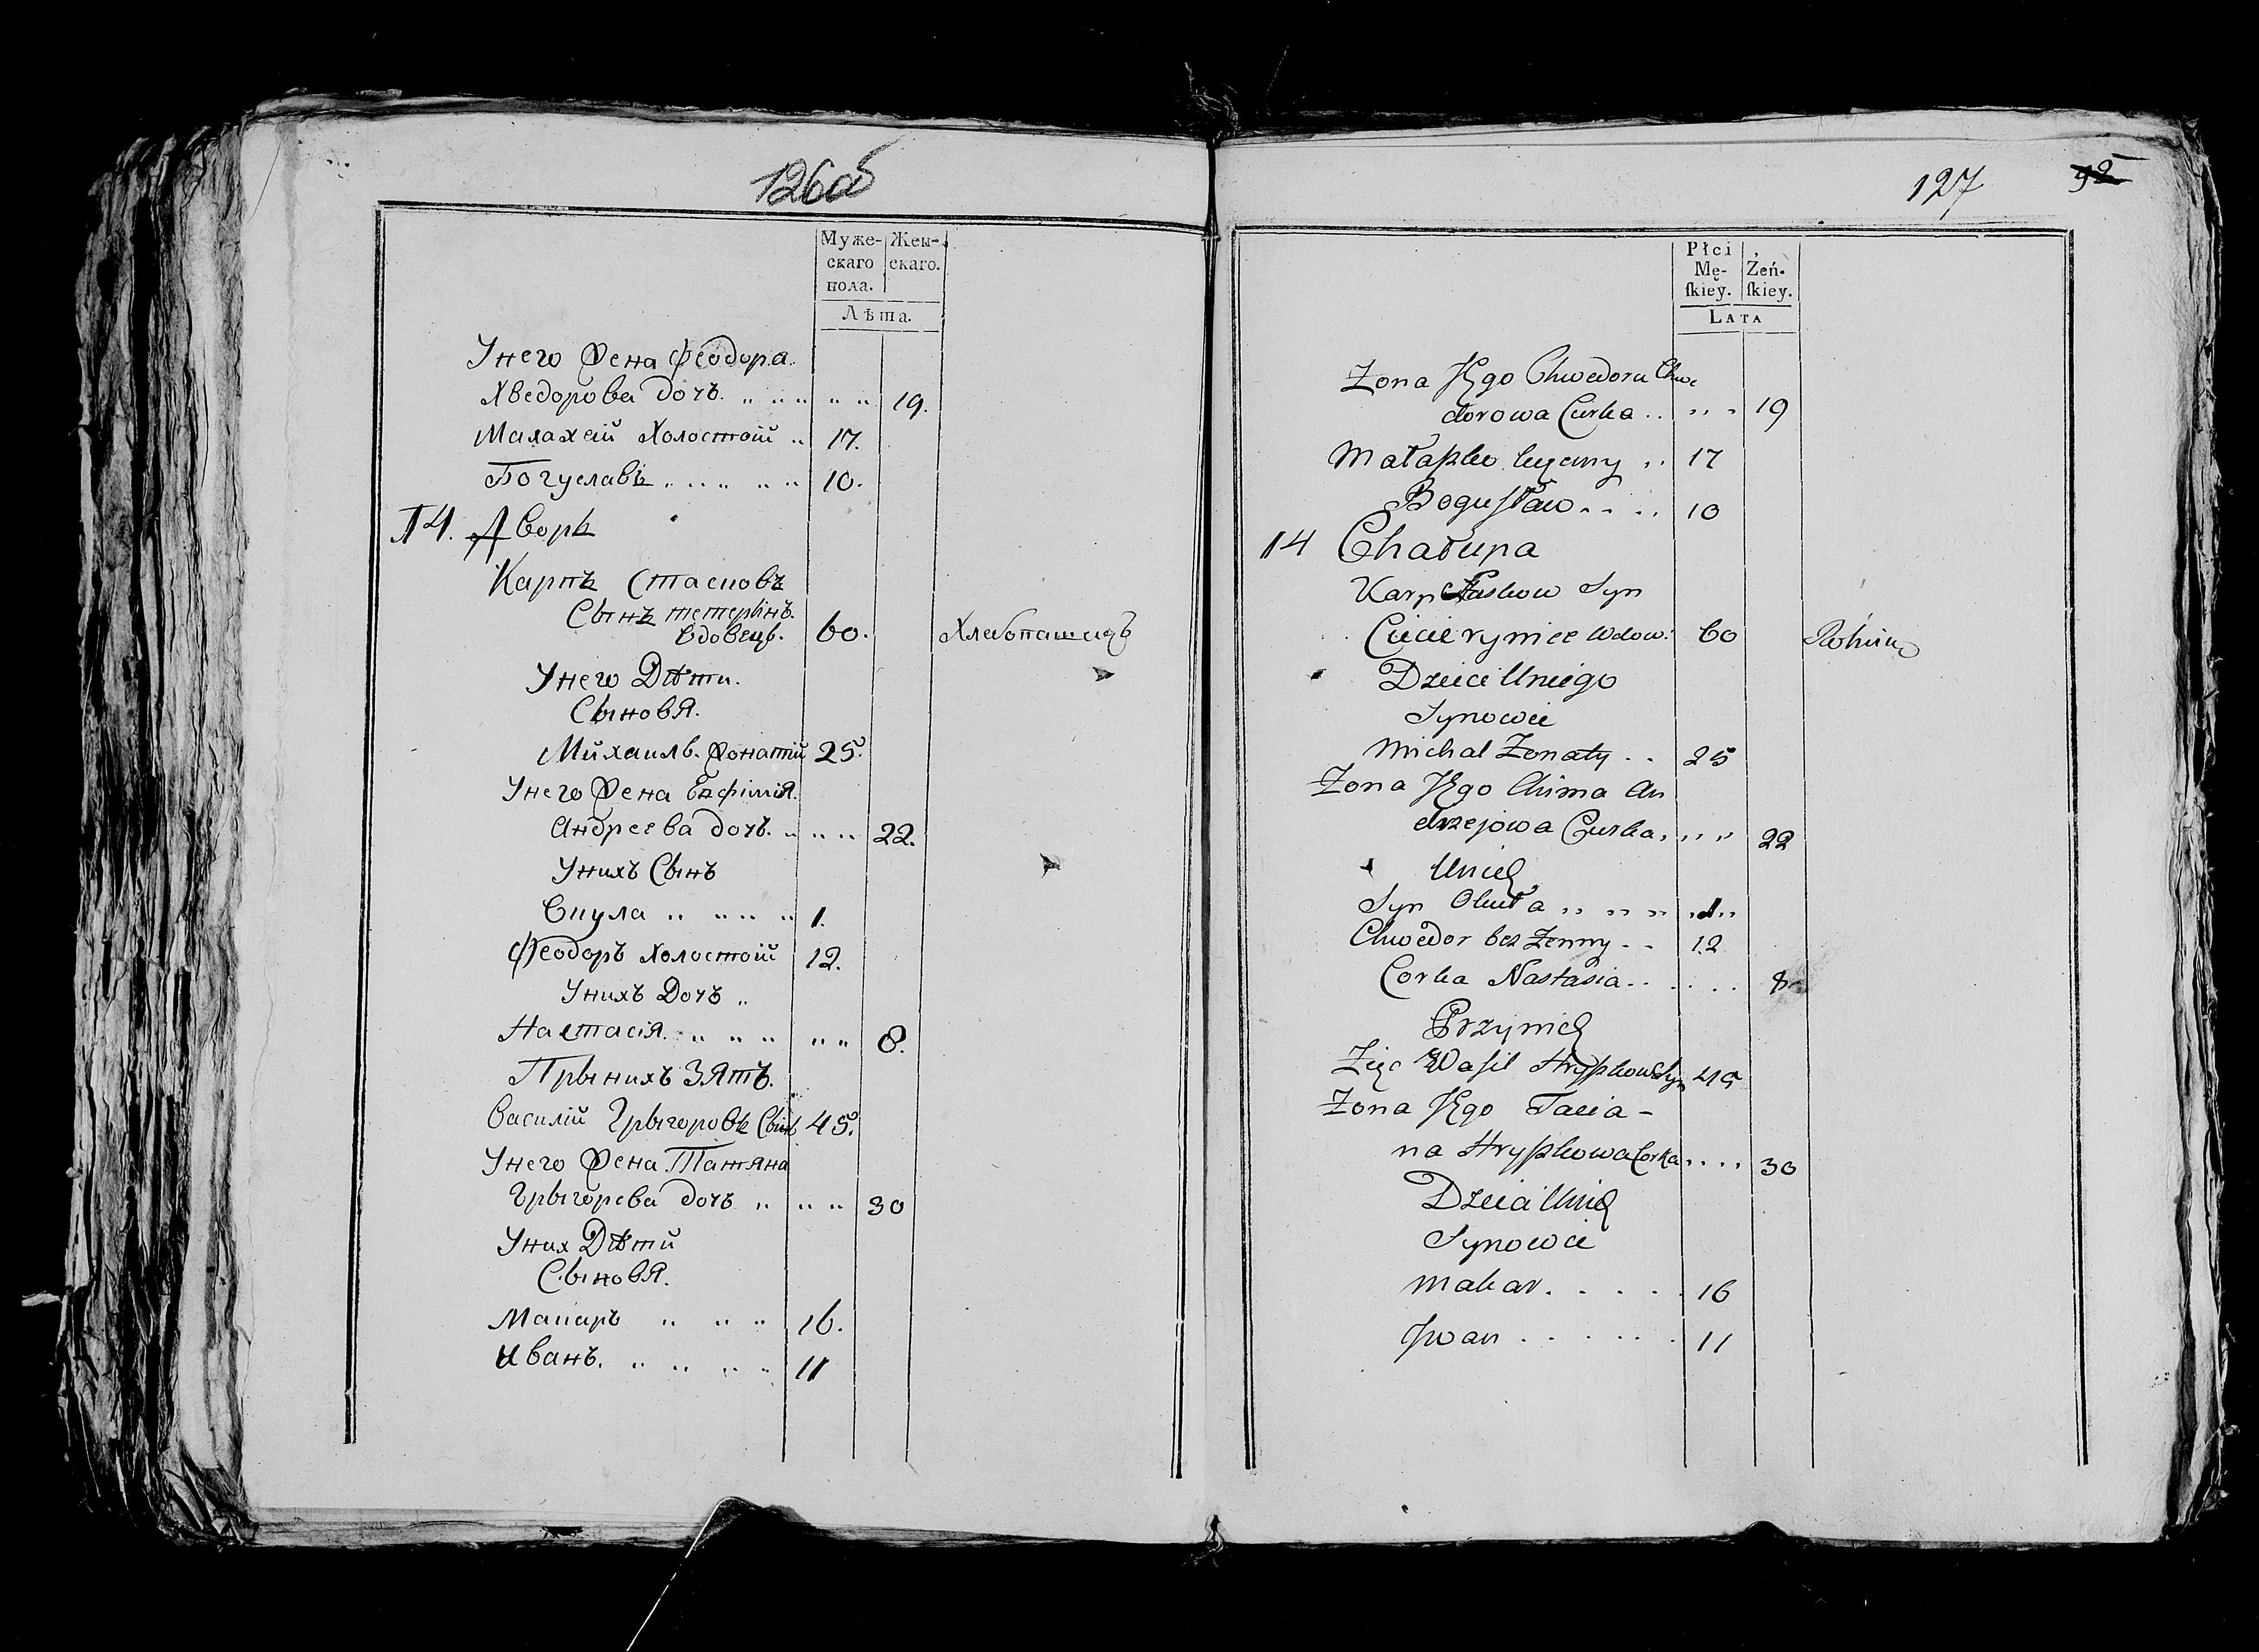 126об
Муже- Жен-
скаго скаго.
пола.
Лѣта.
Унего Жена Феодора
Хведорова дочъ. 19.
Малахей Холостой 17.
Богуславъ 10.
14. Дворъ
Карпъ Стасковъ
Сынъ тетеринъ.
вдовецъ. 60. Хлебопашецъ
Унего Дѣти.
Сыновя.
Михаилъ. Жонатий 25.
Унего Жена Евфимія.
Андреева дочъ. 22.
Унихъ Сынъ
1.
Феодоръ Холостой 12.
Унихъ Дочъ
Настасія 8.
Прынихъ Зятъ.
Василій Грыгоровъ Сынъ 45.
Унего Жена Татяна
Грыгорева дочъ 30
Уних Дѣти
Сыновя.
Макаръ 16.
Иванъ. 11
127 92
Płci
Mę- Żeń-
ſkiey. ſkiey.
LATA
Zona Jego Chwedora Chwe
dorowa Curka 19
17
Bogusław 10
14 Chałupa
Karp Staskow Syn
Wdow: 60
Dzieci Uniego
Synowie
Michal Zonaty 25
Zona Jego Chima An
drzejowa Curka 22
Unich
Syn 1
Chwedor bez Zenny 12
Corka Nastasia 8
Przynich
Zięc Wasil Hryszkow Syn 45
Zona Jego Tacia-
na Hryszkowa Corka 30
Dzieci Unich
Synowie
Makar 16
Jwan 11